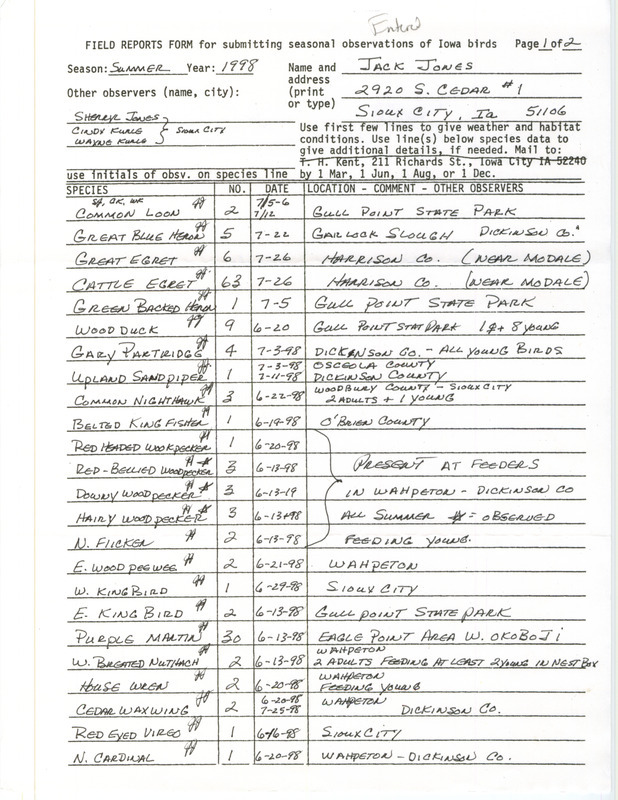 Entered
FIELD REPORTS FORM for submitting seasonal observations of Iowa birds Page 1 of 2
Season: SUMMER Year: 1998 Name and address (print or type) JACK JONES
2920 S. CEDAR #1
SIOUX CITY, Ia 51106
Other observers (name, city):
SHERRYL JONES
CINDY KUHLE } SIOUX CITY
WAYNE KUHLE
Use first few lines to give weather and habitat
conditions. Use line(s) below species data to
give additional details, if needed. Mail to:
T. H. Kent, 211 Richards St., Iowa City IA 52240
use initials of obsv. on species line by 1 Mar, 1 Jun, 1 Aug, or 1 Dec.
SPECIES NO. DATE LOCATION - COMMENT - OTHER OBSERVERS
SJ, CK, WK JJ 7/5-6
COMMON LOON 2 7/12 GULL POINT STATE PARK
GREAT BLUE HERON JJ 5 7-22 GARLOCK SLOUGH DICKINSON CO.
GREAT EGRET JJ 6 7-26 HARRISON CO. (NEAR MODALE)
CATTLE EGRET JJ 63 7-26 HARRISON CO. (NEAR MODALE)
GREEN BACKED HERON JJ 1 7-5 GULL POINT STATE PARK
WOOD DUCK JJ 9 6-20 GULL POINT STAT PARK 1♀ + 8 YOUNG
GARY PARTRIDGE JJ 4 7-3-98 DICKINSON CO. - ALL YOUNG BIRDS
JJ 7-3-98 OSCEOLA COUNTY
UPLAND SANDPIPER 1 7-11-98 DICKINSON COUNTY
WOODBURY COUNTY - SIOUX CITY
COMMON NIGHTHAWK JJ 3 6-22-98 2 ADULTS + 1 YOUNG
BELTED KING FISHER JJ 1 6-19-98 O'BRIEN COUNTY
RED HEADED WOOKPECKER JJ 1 6-20-98
RED-BELLIED WOODPECKER JJ * 3 6-13-98 PRESENT AT FEEDERS
DOWNY WOODPECKER JJ * 3 6-13-19 IN WAHPETON - DICKINSON CO
HAIRY WOODPECKER JJ * 3 6-13-98 ALL SUMMER * = OBSERVED
N. FLICKER JJ 2 6-13-98 FEEDING YOUNG.
E. WOOD PEEWEE JJ 2 6-21-98 WAHPETON
W. KING BIRD JJ 1 6-29-98 SIOUX CITY
E. KING BIRD JJ 2 6-13-98 GULL POINT STATE PARK
PURPLE MARTIN JJ 30 6-13-98 EAGLE POINT AREA W. OKOBOJI
WAHPETON
W. BREATED NUTHACH JJ 2 6-13-98 2 ADULTS FEEDING AT LEAST 2 YOUNG IN NEST BOX
WAHPETON
HOUSE WREN JJ 2 6-20-98 FEEDING YOUNG
JJ 6-20-98 WAHPETON
CEDAR WAXWING 2 7-25-98 DICKINSON CO.
RED EYED VIREO JJ 1 6-16-98 SIOUX CITY
N. CARDINAL JJ 1 6-20-98 WAHPETON - DICKINSON CO.